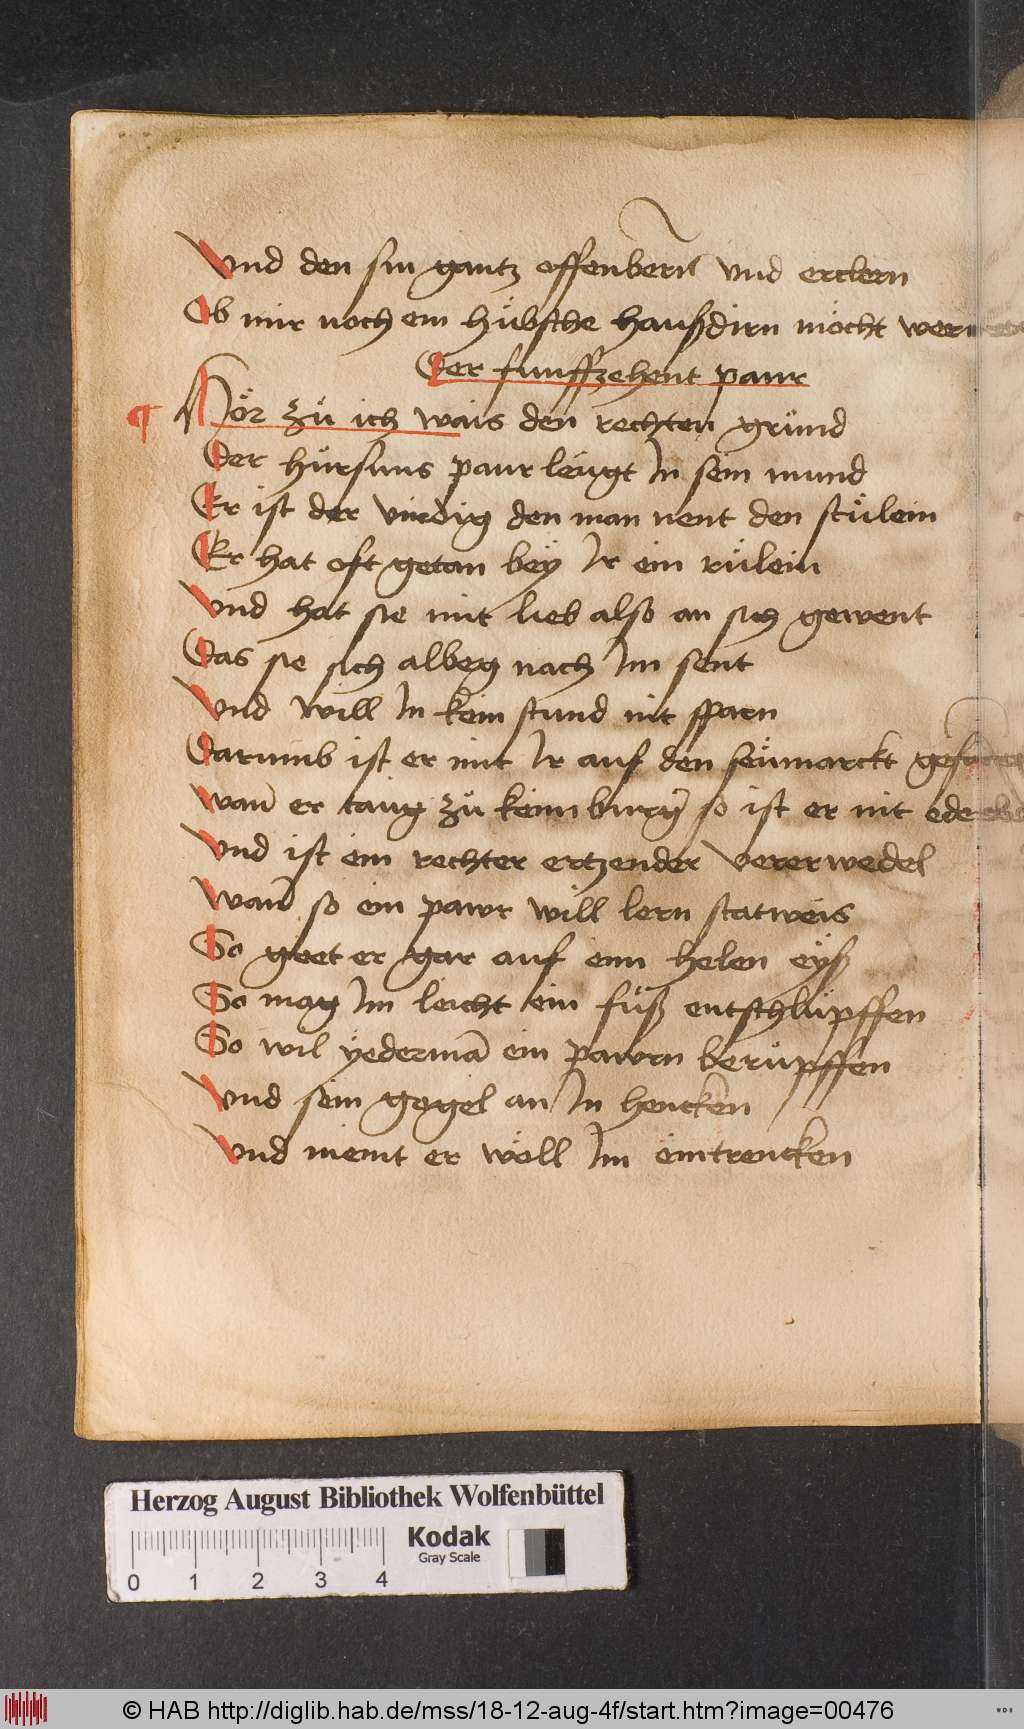 Vnd den sin gantz offenbern vnd erclern
Ob mir noch ein hübsche haußdirn möcht wern
Der funffzehent paur
¶ Hör zü ich wais den rechten gründ
Der hürsuns paur leügt In sein mund
Er ist der virdig den man nent den stülein
Er hat oft getan bey Ir ein rülein
Vnd hat sie mit lieb also an sich gewent
Das sie sich albeg nach Im sent
Vnd will In kein stund nit sparn
Darumb ist er mit Ir auf den seümarckt
wan er taug zü keim burg so ist er nit
Vnd ist ein rechter ertzender vererwedel
Wan so ein pawr will lern statweis
So geet er gar auf eim helen eyß
So mag Im leicht ein füß entschlüpffen
So wil yederman ein pawrn berüpffen
Vnd sein gogel an In hencken
Vnd meint er wöll Im eintrencken
Herzog August Bibliothek Wolfenbüttel
Kodak
Gray Scale
0 1 2 3 4
© HAB http://diglib.hab.de/mss/18-12-aug-4f/start.htm?image=00476